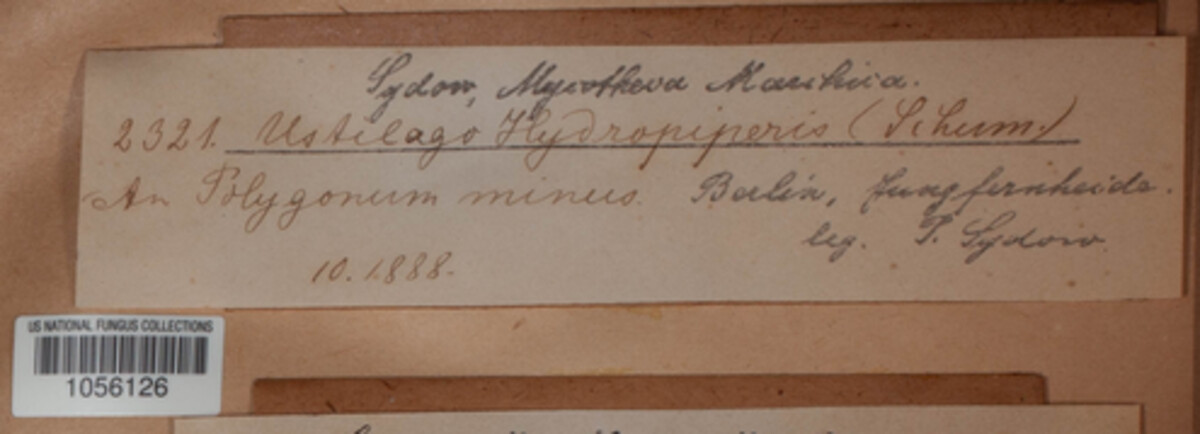 Sydow, Mycotheca Marchica.
2321. Ustilago Hydropiperis (Schum.)
An Polygonum minus. Berlin, Jungfernheide.
leg. P. Sydow.
10. 1888.
US NATIONAL FUNGUS COLLECTIONS
1056126